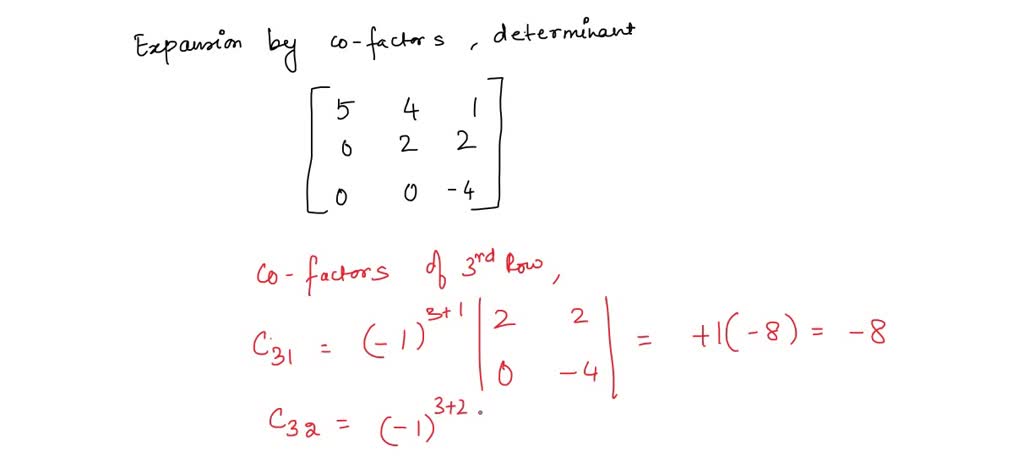 Expansion by co-factors, determinant
5 4 1
0 2 2
0 0 -4
Co-factors of 3rd Row,
C31 = (-1)^3+1 |2 2| = +1(-8) = -8
|0 -4|
C32 = (-1)^3+2 .